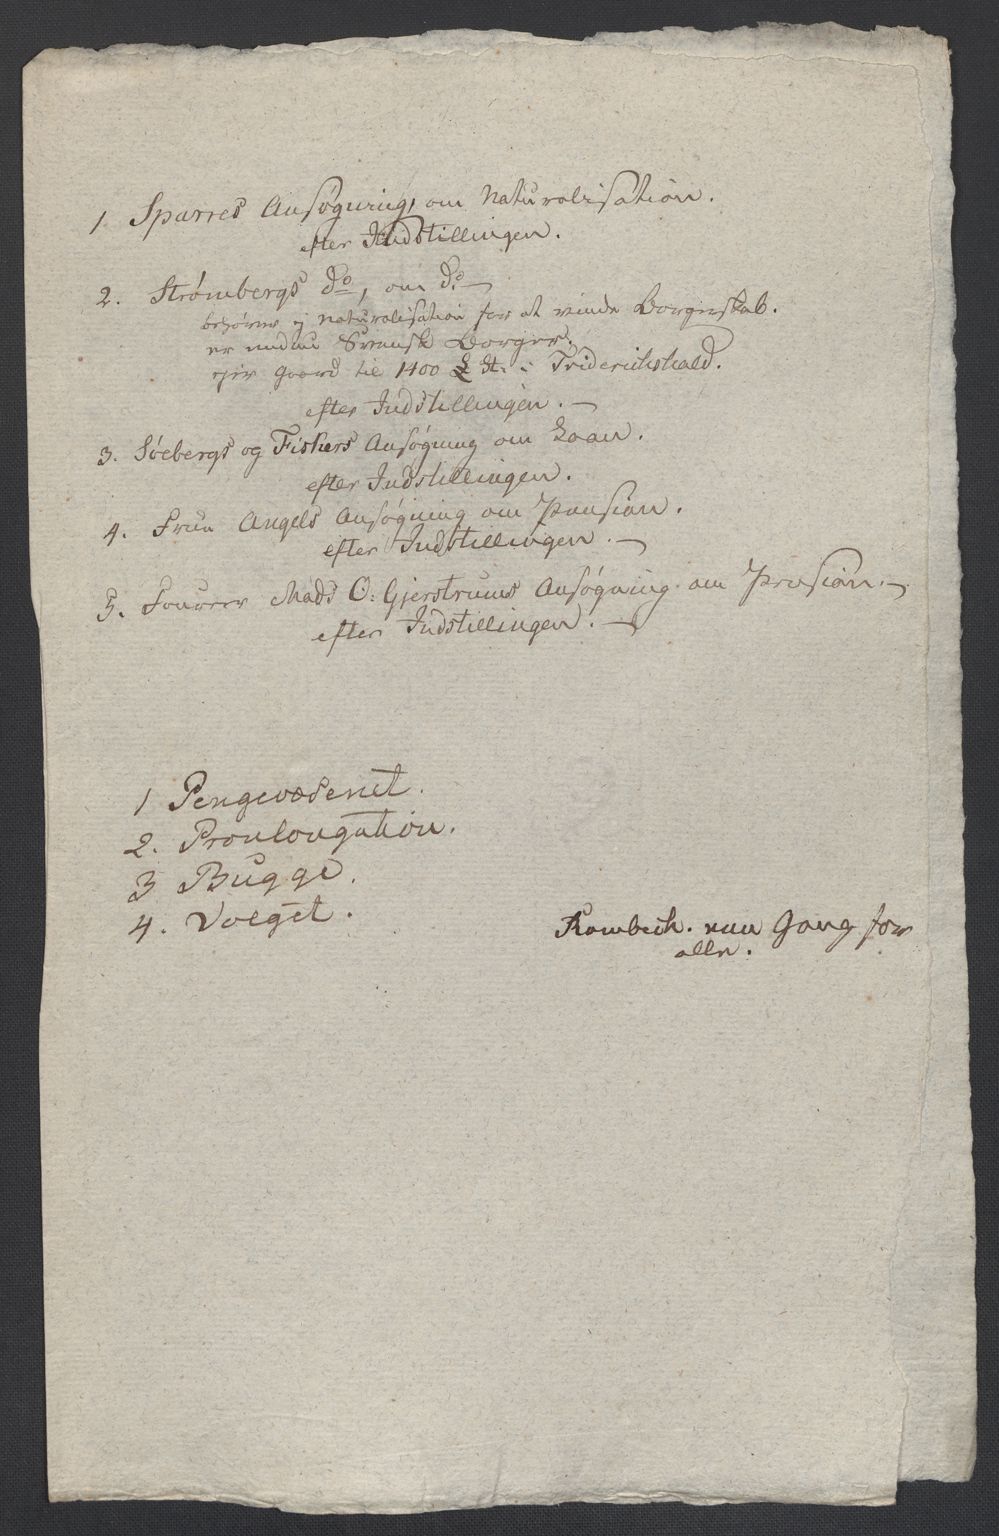 1 Sparres Ansøgning, om Naturalisation.
efter Indstillingen.
2. Strømbergs Do, om Do —
behøver ej Naturalisation for at vinde Borgerskab.
er endnu Svensk Borger.
ejer Gaard til 1400 St. i Friderichshald.
efter Indstillingen. —
3. Søebergs og Fiskers Ansøgning om Laan.
efter Indstillingen.
4. Frue Angels Ansøgning om Pension.
efter Indstillingen. —
5. Fourer Mads O: Gjerstrums Ansøgning om Pension. —
efter Indstillingen. —
1 Pengevæsenet.
2. Pronlongation.
3 Bugge.
4. Valget.
Rambech. een Gang for
alle.